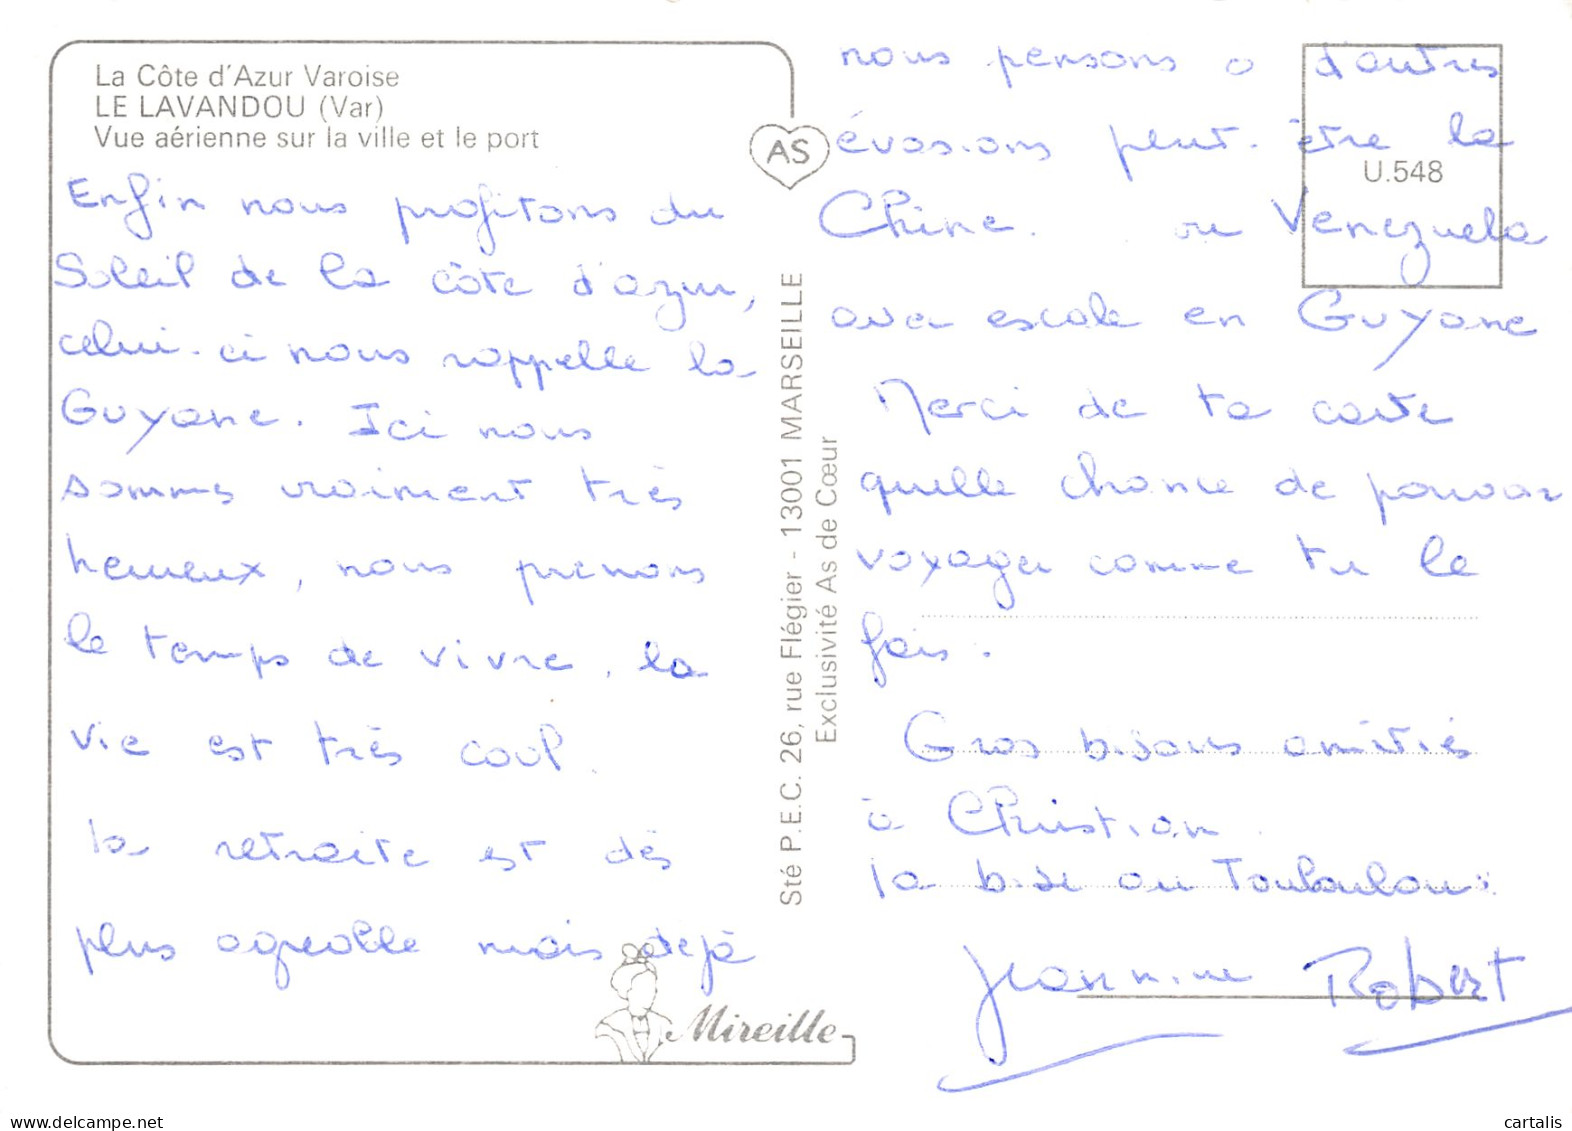 La Côte d'Azur Varoise
LE LAVANDOU (Var)
Vue aérienne sur la ville et le port
Enfin nous profitons du
Soleil de la côte d'azur,
celui-ci nous rappelle la
Guyane. Ici nous
sommes vraiment très
heureux, nous prenons
le temps de vivre, la
vie est très cool.
la retraite est dés
plus agreable mais dejà
Mireille
AS
Sté P.E.C. 26, rue Flégier - 13001 MARSEILLE
Exclusivité As de Cœur
U.548
nous pensons a d'autres
évasions peut-être la
Chine. ou Venezuela
avec escale en Guyane
Merci de ta carte
quelle chance de pouvoir
voyager comme tu le
fais.
Gros bisous amitiés
à Christian.
la bise au Touloulous
Jeannine Robert
www.delcampe.net
cartalis